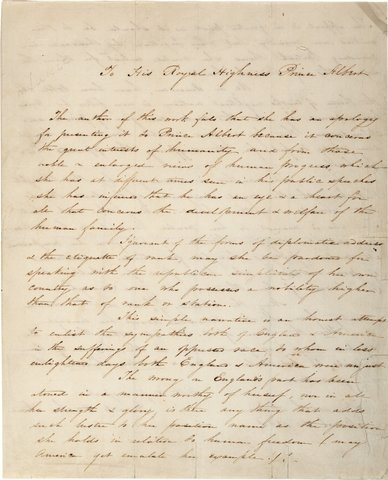 To His Royal Highness Prince Albert
The author of this work feels that she has an apology
for presenting it to Prince Albert because it concerns
the great interests of humanity and from those
noble & enlarged views of human progress which
she has at different times seen in his public speeches
she has inferred that he has an eye & a heart for
all that concerns the development & welfare of the
human family
Ignorant of the forms of diplomatic address
& the etiquette of rank may she be pardoned for
speaking with the republican simplicity of her own
country as to one who possesses a nobility higher
than that of rank or station.
This simple narrative is an honest attempt
to enlist the sympathies both of England & America
in the sufferings of an oppressed race to whom in less
enlightened days both England & America were unjust
The wrong on England's part has been
atoned in a manner worthy of herself, nor in all
her strength & glory, is there any thing that adds
such lustre to her name as the position
she holds in relation to human freedom (may
America yet emulate her example !)